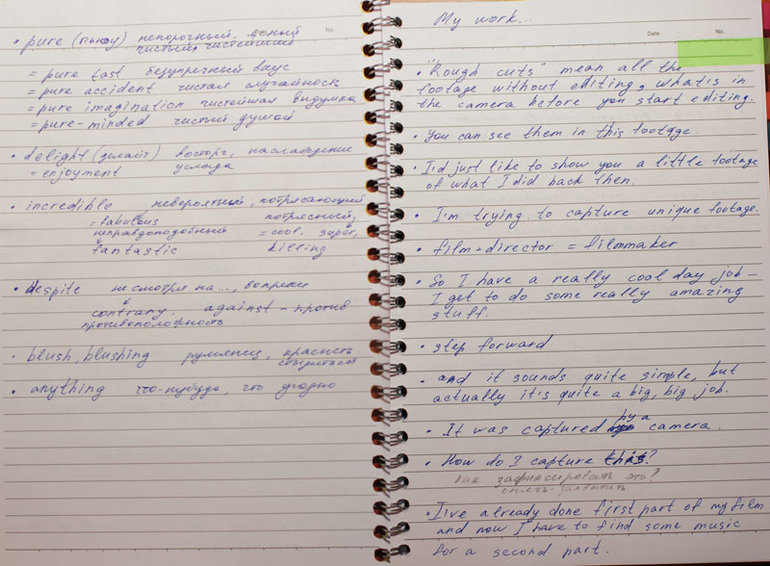 • pure (пьюу) непорочный, ясный
чистый, чистейший
= pure tast безупречный вкус
= pure accident чистая случайность
= pure imagination чистейшая выдумка
= pure-minded чистый душой
• delight (дилайт) восторг, наслаждение
= enjoyment услада
• incredible невероятный, потрясающий
= fabulous потрясный,
неправдоподобный = cool, super,
fantastic killing
• despite несмотря на..., вопреки
contrary. against – против
противоположность
• blush, blushing румянец, краснеть
стыдиться
• anything что-нибудь, что угодно
No.
My work...
Date No.
• "Rough cuts" mean all the
footage without editing, what's in
the camera before you start editing.
• You can see them in this footage.
• I'd just like to show you a little footage
of what I did back then.
• I'm trying to capture unique footage.
• film + director = filmmaker
• So I have a really cool day job –
I get to do some really amazing
stuff.
• step forward
• and it sounds quite simple, but
actually it's quite a big, big job.
• It was captured by a camera.
• How do I capture this?
как зафиксировать это?
• I've already done first part of my film
and now I have to find some music
for a second part.